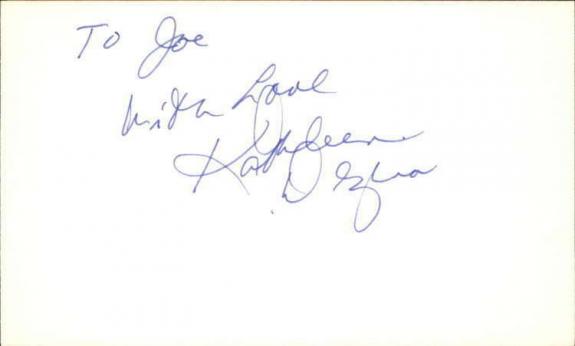 To Joe
With Love
Kathleen